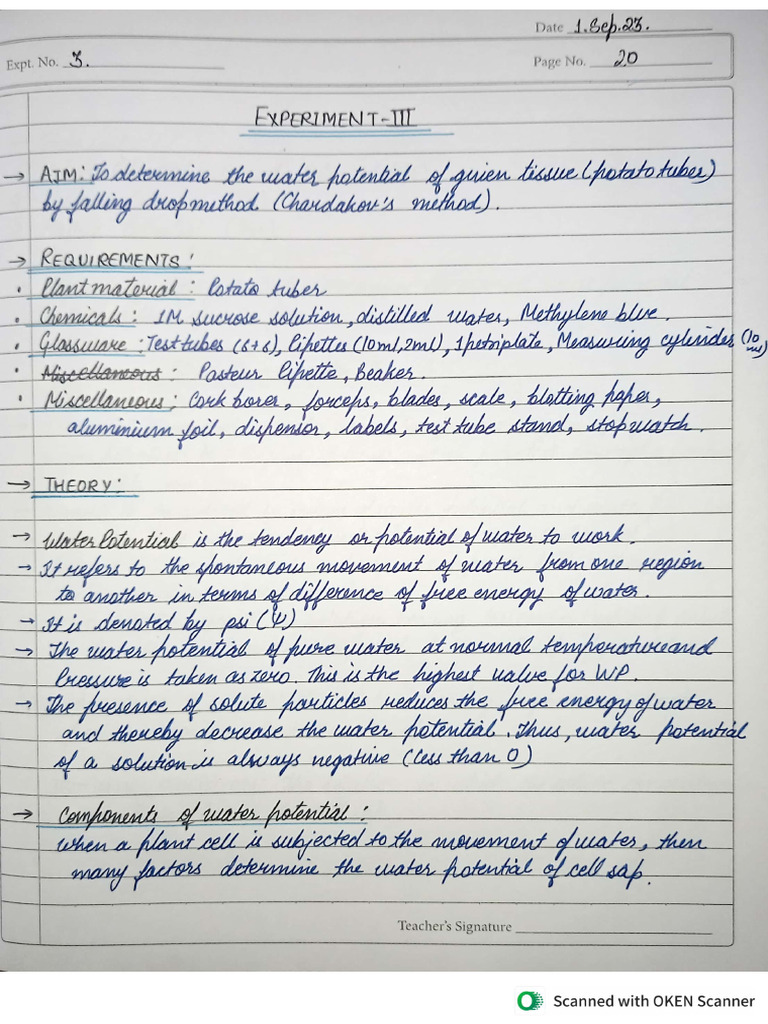 Date 1.Sep.23.
Expt. No. 3.
Page No. 20
EXPERIMENT-III
→ AIM: To determine the water potential of given tissue (potato tuber)
by falling drop method (Chardakov's method).
→ REQUIREMENTS:
• Plant material: Potato tuber
• Chemicals: 1M sucrose solution, distilled water, Methylene blue.
• Glassware: Test tubes (6+6), Pipettes (10ml, 2ml), 1 petriplate, Measuring cylinides (10
• Miscellaneous: Pasteur Pipette, Beaker.
• Miscellaneous: Cork borer, forceps, blades, scale, blotting paper,
aluminium foil, dispensor, labels, test tube stand, stopwatch.
→ THEORY:
→ Water Potential is the tendency or potential of water to work.
→ It refers to the spontaneous movement of water from one region
to another in terms of difference of free energy of water.
→ It is denoted by psi (Ψ)
→ The water potential of pure water at normal temperature and
Pressure is taken as zero. This is the highest value for WP.
→ The presence of solute particles reduces the free energy of water
and thereby decrease the water potential. Thus, water potential
of a solution is always negative (less than 0)
→ Components of water potential:
When a plant cell is subjected to the movement of water, then
many factors determine the water potential of cell sap.
Teacher's Signature
Scanned with OKEN Scanner